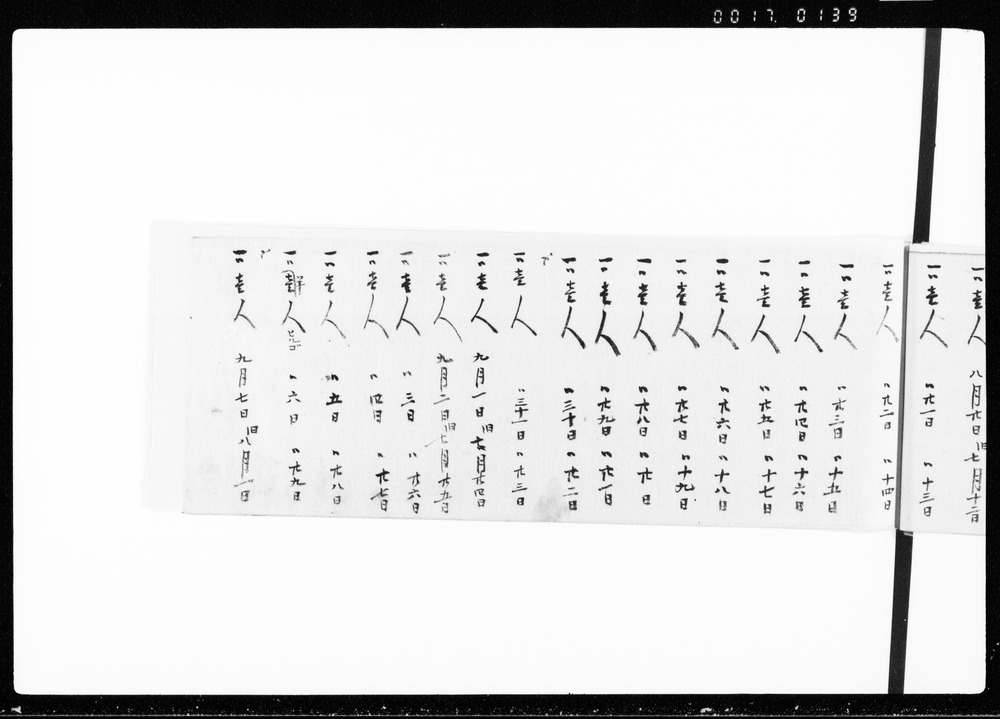 0017. 0139
一〃壱人 八月廿日旧七月十二日
一〃壱人 〃廿一日 〃十三日
一〃壱人 〃廿二日 〃十四日
一〃壱人 〃廿三日 〃十五日
一〃壱人 〃廿四日 〃十六日
一〃壱人 〃廿五日 〃十七日
一〃壱人 〃廿六日 〃十八日
一〃壱人 〃廿七日 〃十九日
一〃壱人 〃廿八日 〃廿日
一〃壱人 〃廿九日 〃廿一日
一〃壱人 〃三十日 〃廿二日
一〃壱人 〃三十一日 〃廿三日
一〃壱人 九月一日旧七月廿四日
一〃壱人 九月二日旧七月廿五日
一〃壱人 〃三日 〃廿六日
一〃壱人 〃四日 〃廿七日
一〃壱人 〃五日 〃廿八日
一〃人 〃六日 〃廿九日
一〃壱人 九月七日旧八月一日